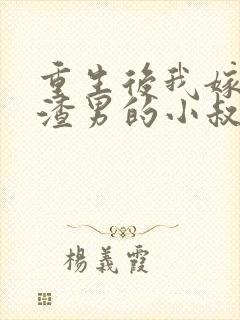 重生後我嫁
渣男的小叔
楊義霞